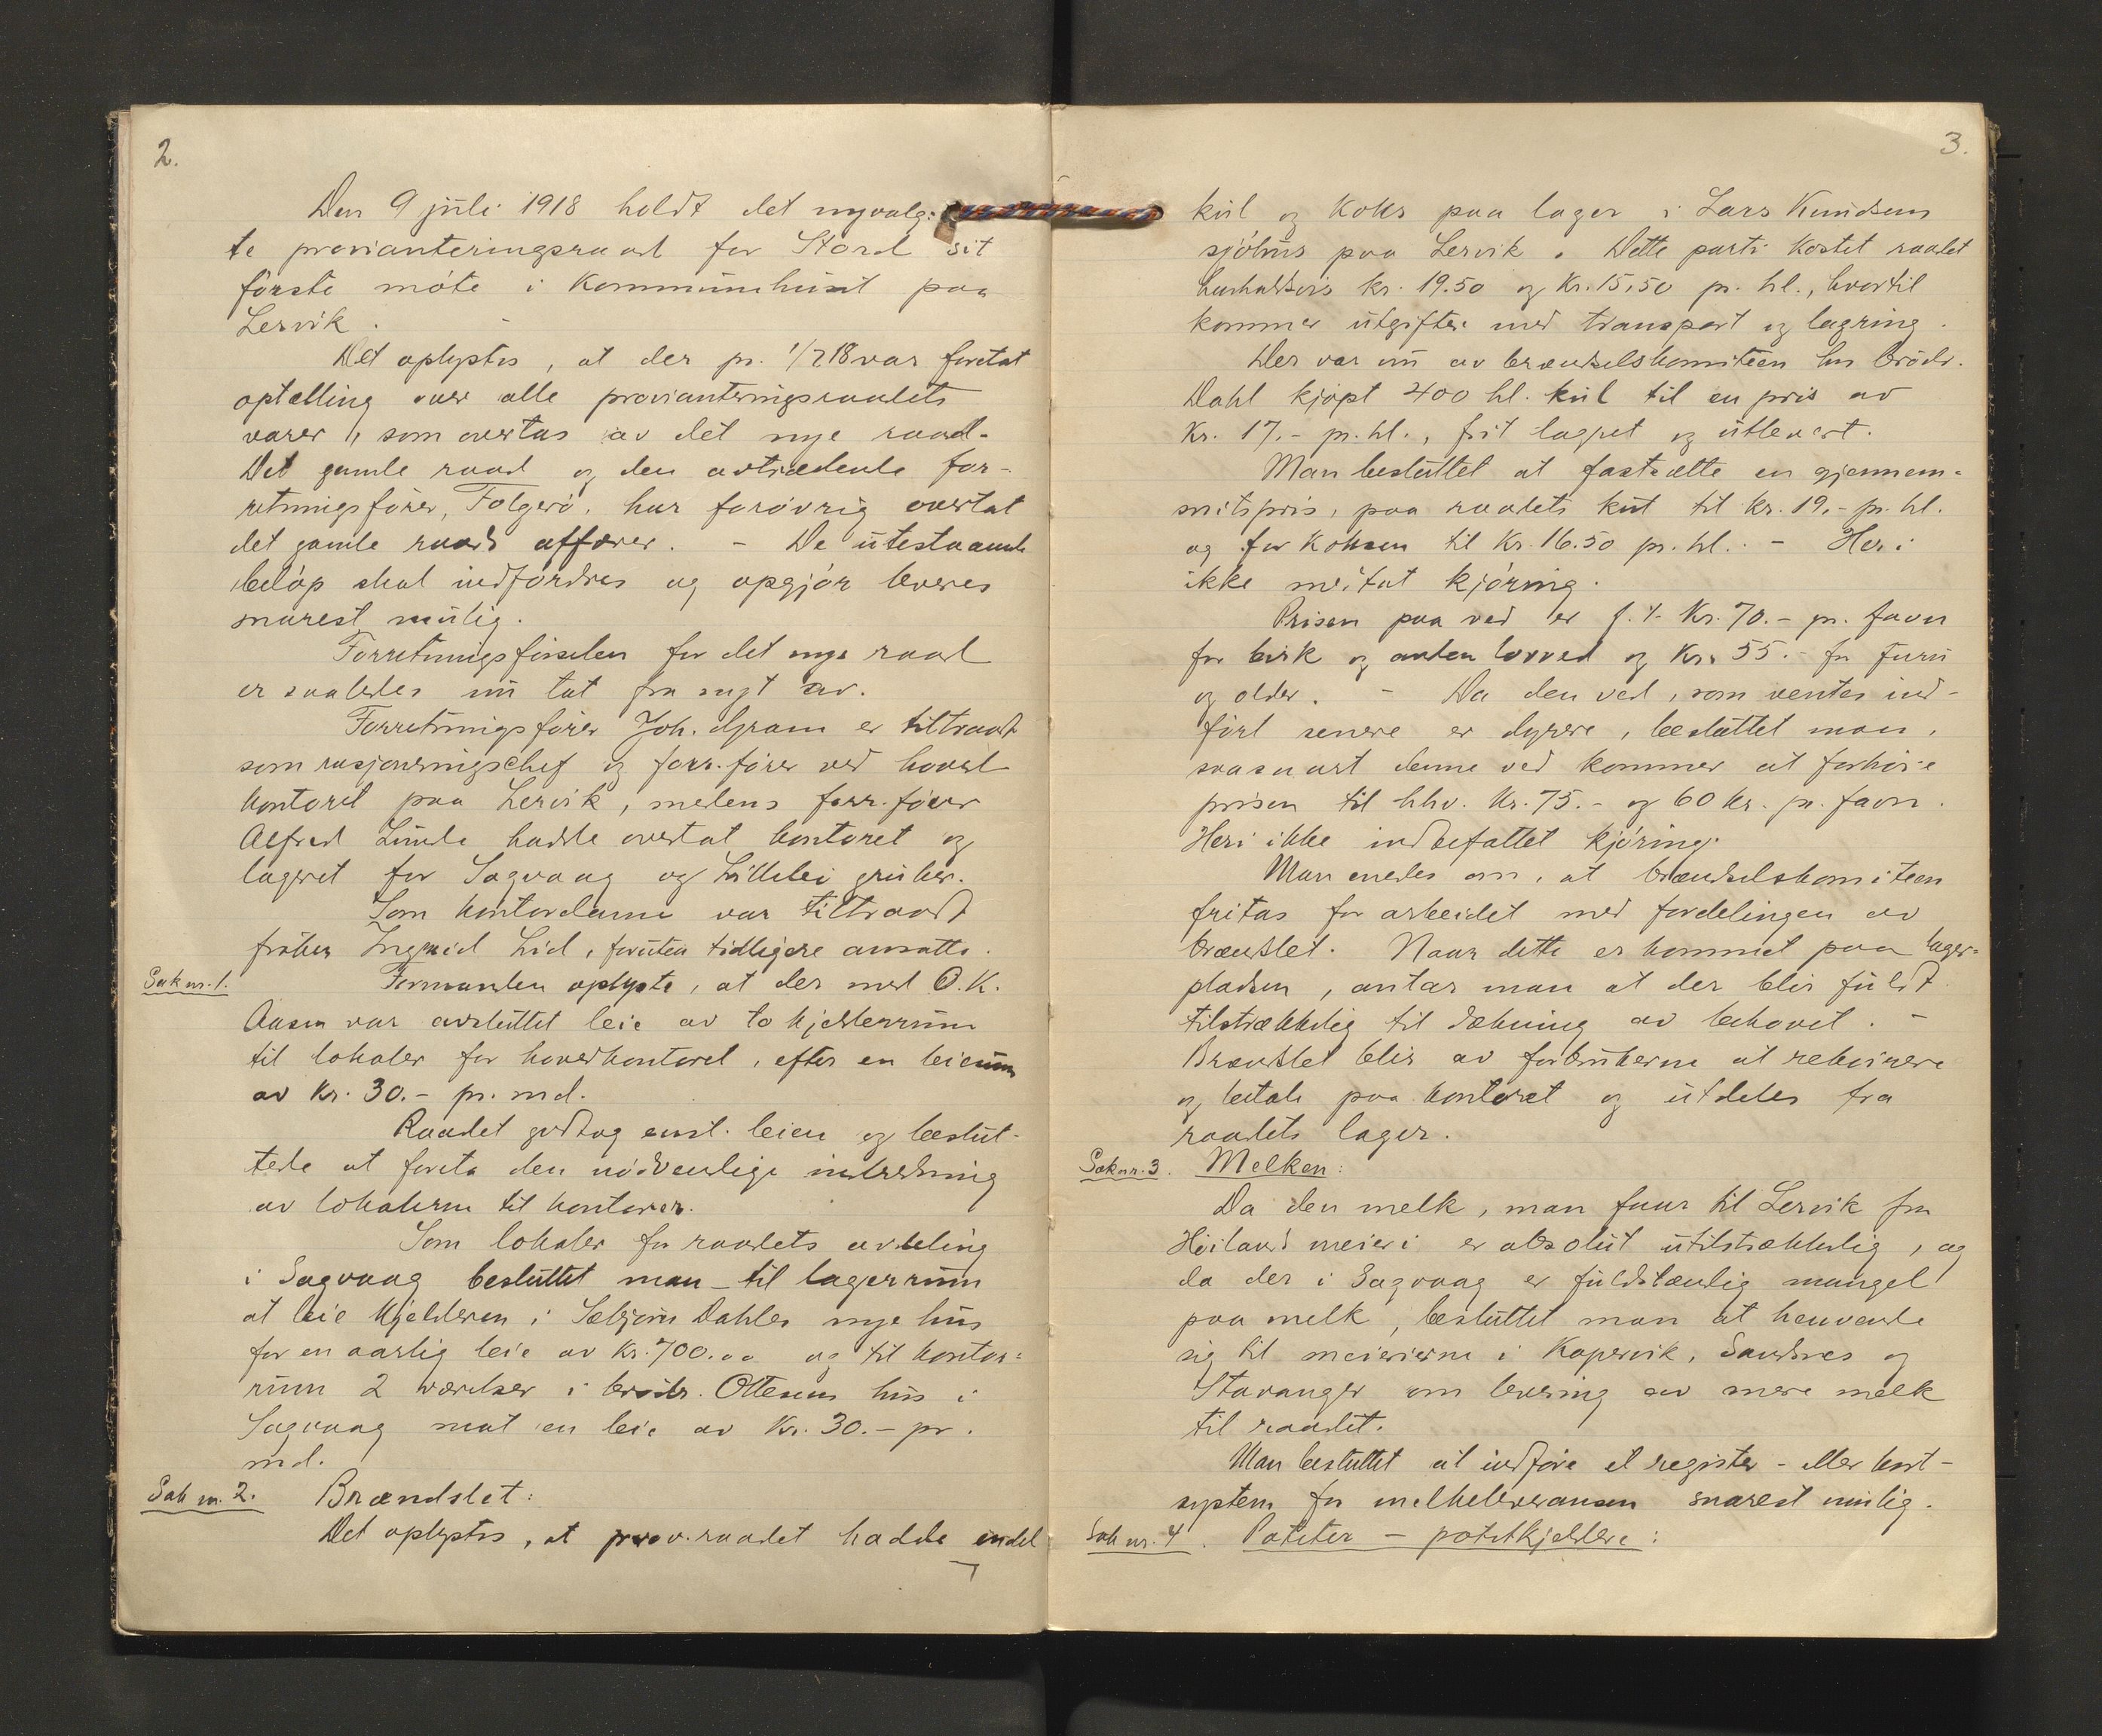 2.
Den 9 juli 1918 holdt det nyvalg:
te provianteringsraad for Stord sit
förste möte i Kommunehuset paa
Lervik.
Det oplystes, at der pr. 1/7 18 var foretat
optælling over alle provianteringsraadets
varer, som overtas av det nye raad.
Det gamle raad og den avtrædende for-
retningsförer, Folgerö, har forövrig overtat
det gamle raads affærer. - De utestaaende
belöp skal indfordres og opgjör leveres
snarest mulig.
Forretningsförselen for det nye raad
er saaledes nu tat fra nyt av.
Forretningsförer Joh. Gram er tiltraadt
som rasjoneringschef og forr.förer ved hoved
kontoret paa Lervik, melens forr.förer
Alfred Lunde hadde overtat kontoret og
lageret for Sagvaag og Litlebö gruber.
Som kontordame var tiltraadt
fröken Ingrid Lid, foruten tidligere ansatte.
Sak nr. 1.
Formanden oplyste, at der med O. K.
Aasen var avsluttet leie av to kjelderrum
til lokaler for hovedkontoret, efter en leiesum
av Kr. 30.- pr. md.
Raadet godtog enst. leien og beslut-
tede at foreta den nödvendige indredning
av lokalerne til kontorer.
Som lokaler for raadets avdeling
i Sagvaag besluttet man - til lagerrum
at leie kjelderen i Sebjörn Dahles nye hus
for en aarlig leie av Kr. 700.00 og til kontor:
rum 2 værelser i brödr. Ottesens hus i
Sagvaag mot en leie av Kr. 30.- pr.
md.
Sak nr. 2. Brændslet:
Det oplystes, at prov.raadet hadde endel
3.
kul og Koks paa lager i Lars Knudsens
sjöhus paa Lervik. Dette parti kostet raadet
henholdsvis kr. 19.50 og Kr. 15.50 pr. hl., hvortil
kommer utgifter med transport og lagring.
Der var nu av brændselskomiteen hos brödr.
Dahl kjöpt 400 hl. kul til en pris av
Kr. 17.- pr. hl., frit lagret og utlevert.
Man besluttet at fastsætte en gjennem-
snitspris, paa raadets kul til kr. 19.- pr. hl.
og for Koksen til Kr. 16.50 pr. hl. - Her i
ikke meitat kjöring.
Prisen paa ved er f. t. Kr. 70.- pr. favn
for birk og anden lovved og Kr. 55.- for furu
og older. - Da den ved, som ventes ind-
fört senere er dyrere, besluttet man,
saasnart denne ved kommer at forhöie
prisen til hhv. Kr. 75.- og 60 kr. pr. favn.
Heri ikke indbefattet kjöring.
Man enedes om, at brændselskomiteen
fritas for arbeidet med fordelingen av
brændslet. Naar dette er kommet paa lager-
pladsen, antar man at der blir fuldt
tilstrækkelig til dækning av behovet. -
Brændslet blir av forbrukerne at rekvirere
og betale paa kontoret og utdeles fra
raadets lager.
Sak nr. 3. Melken:
Da den melk, man faar til Lervik fra
Höiland meieri er absolut utilstrækkelig, og
da der i Sagvaag er fuldstændig mangel
paa melk, besluttet man at henvende
sig til meierierne i Kopervik, Sandnes og
Stavanger om levering av mere melk
til raadet.
Man besluttet at indföre et register - eller kort-
system for melkeleveransen snarest mulig.
Sak nr. 4. Poteter - potetkjeldere: